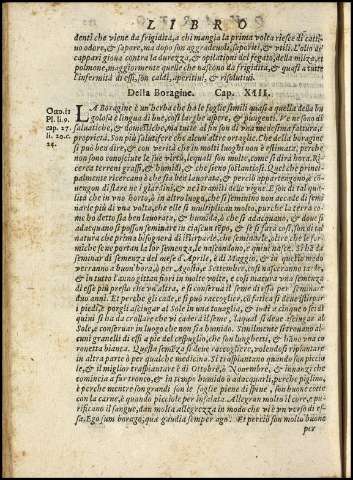 LIBRO
denti che viene da frigidità, a chi mangia la prima volta riesce di catiuo
odore, & sapore, ma dopo son aggradeuoli, saporiti, & vtili. L'olio de'
cappari gioua contra la durezza, & opilationi del fegato, della milza, et
polmone, maggiormente quelle che nascono da frigidità, & quasi a tutte
l'infermità di essi, son caldi, aperitiui, & risolutiui.
Della Boragine. Cap. XIII.
LA Boragine è un'herba che ha le foglie simili quasi a quella della bu
golosa è lingua di bue, così larghe aspere, & pungenti. Ve ne sono di
saluatiche, & domestiche, ma tutte di son di una medesima fatura, e
proprietà. Son più salutifere che alcun'altre ortaglie. Che della boragine
si può ben dire, & con verità che in molti luoghi non è estimata, perche
non sono conosciute le sue virtù, lequali son molte, come si dirà hora. Ri
cerca terreni grassi, & humidi, & che sieno sostantiosi. Quel che princi
palmente ricerca è che sia ben lauorata, & perciò appartengono, & con
uengon di stare ne i giardini, & ne i tramiti delle vigne. E son di tal qua
lità che in vno horto, ò in altro luogo, che si seminino non accade di semi
narle più di vna volta, & esse si multiplican molto, purche la terra co
me ho detto sia ben lauorata, & humida, ò che si adacquano, & doue si
adacquano si posson seminare in ciascun tẽpo, & se si farà così, son di tal
natura che prima bisognerà distirparle, che seminarle, oltre che le formi
che se ne portan la lor semenza,
seminar di semenza del mese d'Aprile, & di Maggio, & in questo modo
verranno a buon'hora, ò per Agosto, e Settembre,
& in tutto l'anno gittan fiori in molte volte, e così matura vna semenza
di esse più presto che vn'altra, e si conserua il seme di essa per seminare
duo anni. Et perche gli cade, e si può raccoglier, cō fatica si deue istirpar
i piedi, e porgli asciugar al Sole in vna touaglia, & indi a cinque o sei dì
quini si ha da crollare che vi caderà il seme, laqual si deue asciugar al
Sole, e conseruar in luogo che non sia humido. Similmente si trouano al
cuni granelli di essi a piè del cespuglio, che son lunghetti, & hāno vna co
ronetta bianca. Questa semēza si deue raccogliere, volendosi ripiantare
in altra parte ò per qualche medicina. Si traspiantano quando son piccio
le, & il miglior traspiantare è di Ottobre, ò Nouembre, & innanzi che
comincia a far tronco, & in tempo humido ò adacquarli, perche piglino,
è perche mentre son grandi son le foglie piene di spine, son buone cotte
con la carne, è quando picciole per insalata. Allegran molto il core, e pu
rificano il sangue, dan molta allegrezza in modo che vi è vn verso di es
sa, Ego sum borago, quæ gaudia semper ago. Et perciò son molto buone
per